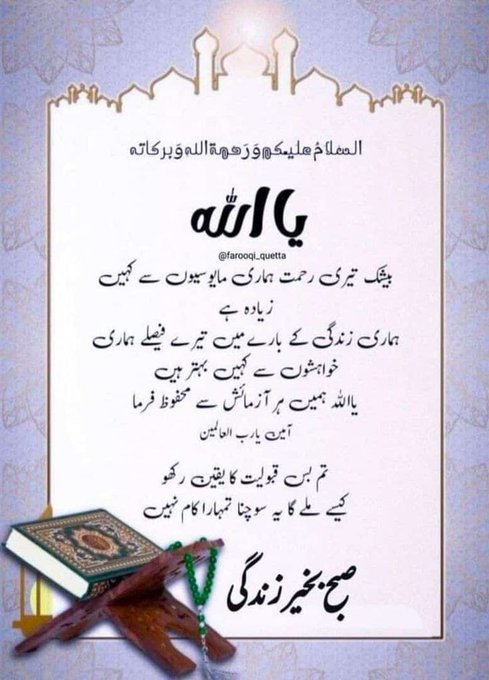 السلامُ علیکم وَرَحمۃ اللہ وَبرکاتہ
یا اللہ
@farooqi_quetta
بیشک تیری رحمت ہماری مایوسیوں سے کہیں
زیادہ ہے
ہماری زندگی کے بارے میں تیرے فیصلے ہماری
خواہشوں سے کہیں بہتر ہیں
یااللہ ہمیں ہر آزمائش سے محفوظ فرما
آمین یارب العالمین
تم بس قبولیت کا یقین رکھو
کیسے ملے گا یہ سوچنا تمہارا کام نہیں
صبح بخیر زندگی